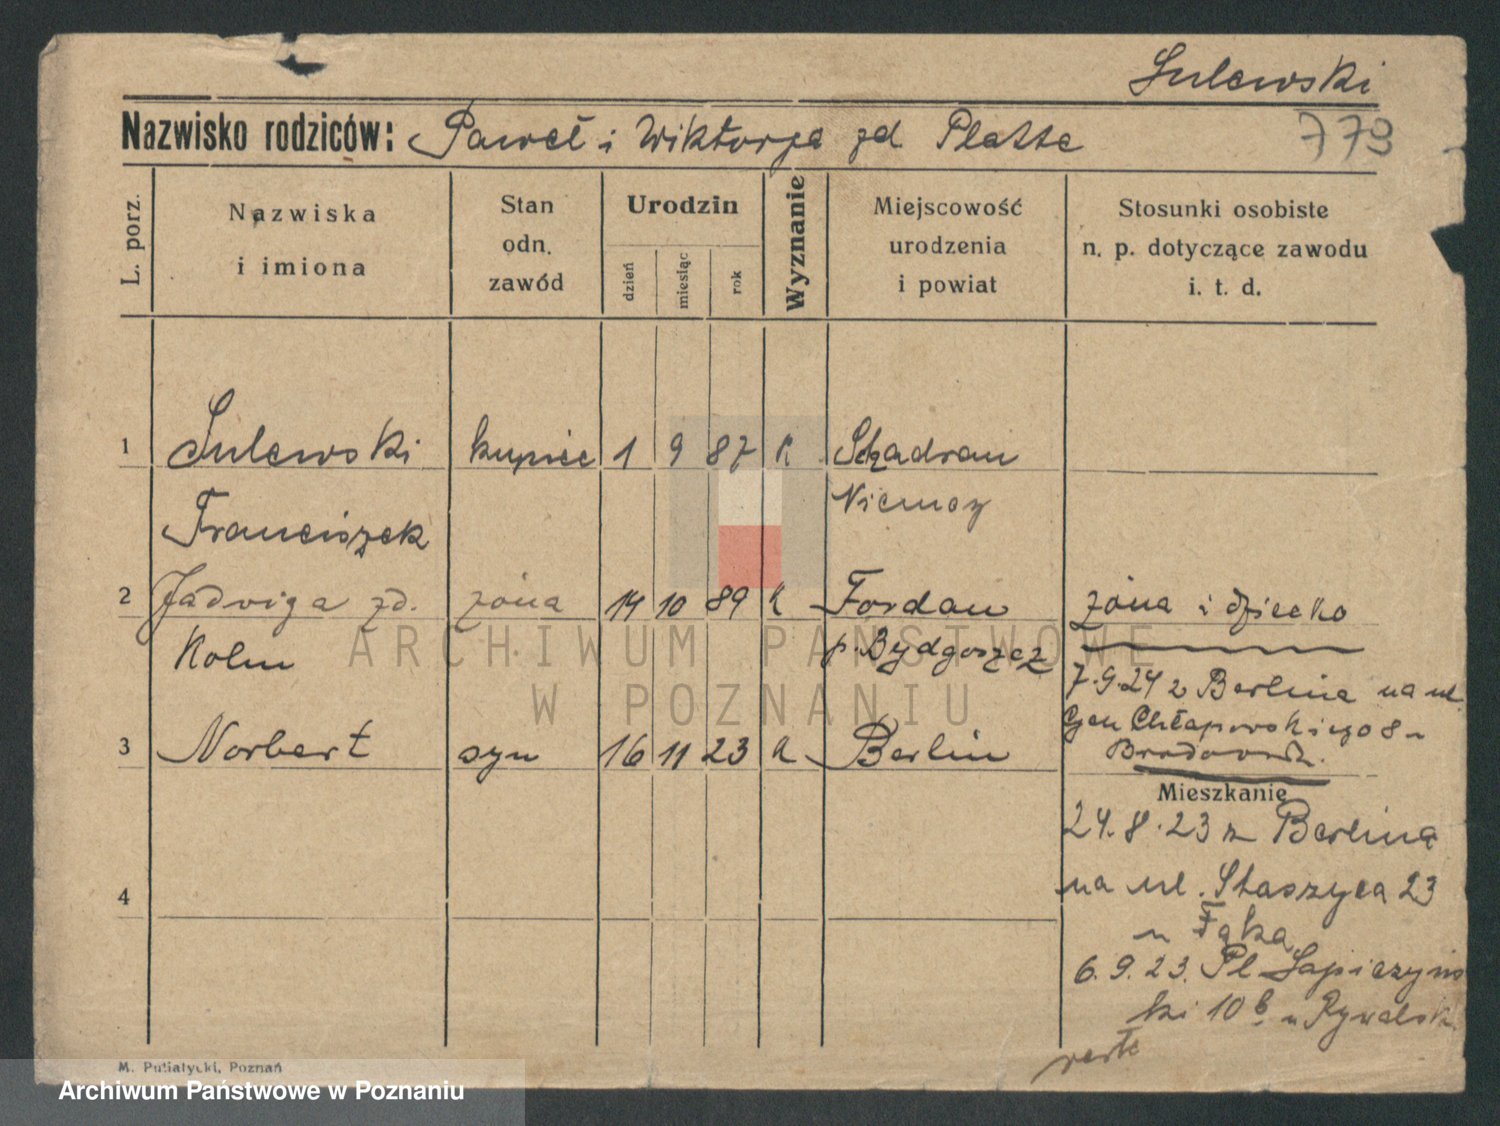 Sulewski
Nazwisko rodziców: Paweł i Wiktorja zd Platte
779
L. porz.
Nazwiska i imiona
Stan odn. zawód
Urodzin
dzień miesiąc rok
Wyznanie
Miejscowość urodzenia i powiat
Stosunki osobiste n. p. dotyczące zawodu i. t. d.
1 Sulewski kupiec 1 9 87 k Schadrau
Franciszek Niemcy
2 Jadwiga zd. żona 14 10 89 k Fordon żona i dziecko
Kolm p. Bydgoszcz
7.9.24 z Berlina na ul.
Gen Chłapowskiego 8 u
3 Norbert syn 16 11 23 k Berlin
Mieszkanie
24.8.23 z Berlina
na ul. Staszyca 23
u Fąka
4
6.9.23. Pl Sapieżyńs
ki 10b u Rywalsk
M. Putiatycki, Poznań
ARCHIWUM PAŃSTWOWE
W POZNANIU
Archiwum Państwowe w Poznaniu